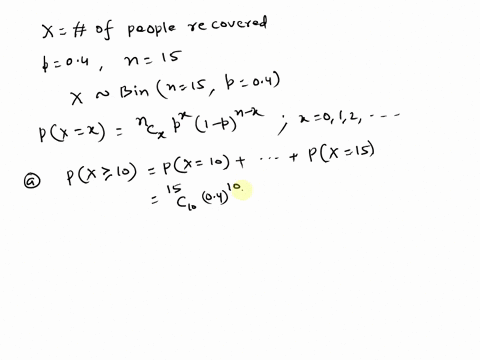 X = # of people recovered
p = 0.4 , n = 15
X ~ Bin (n = 15, p = 0.4)
P(X = x) = ⁿCₓ pˣ (1-p)ⁿ⁻ˣ ; x = 0, 1, 2, ----
ⓐ P(X ≥ 10) = P(X = 10) + --- + P(X = 15)
= ¹⁵C₁₀ (0.4)¹⁰